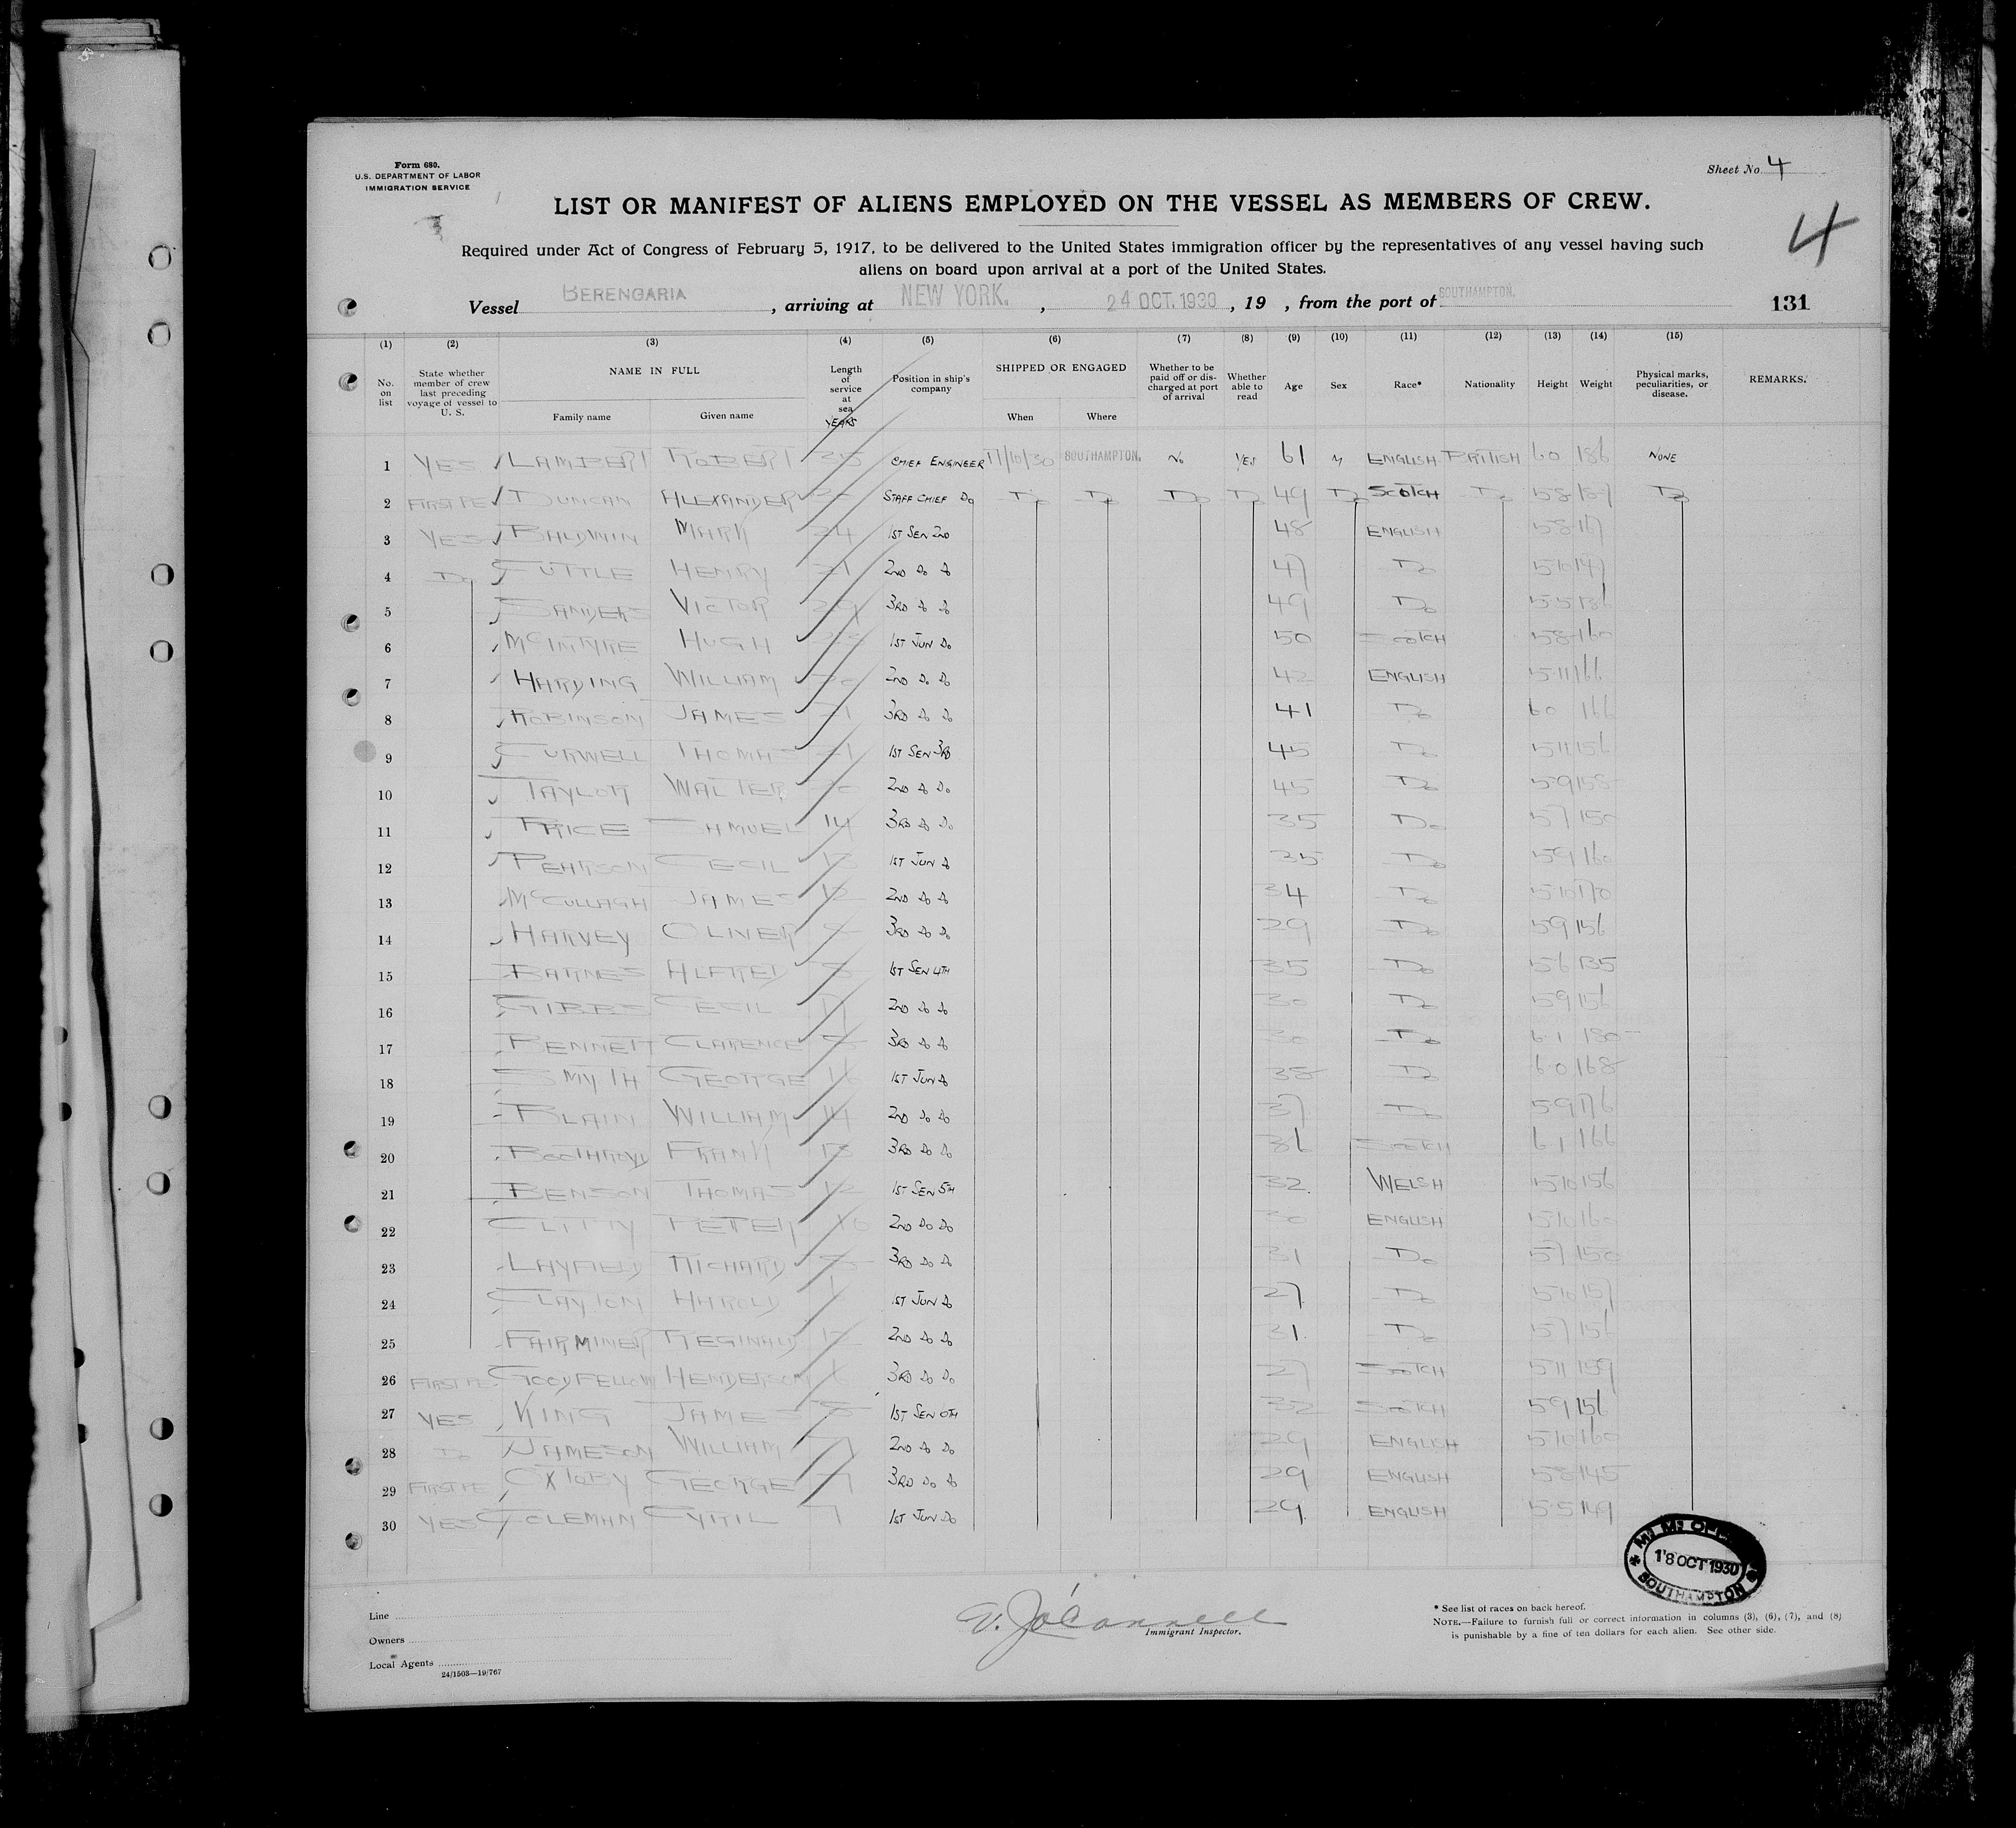 Form 680.
U.S. DEPARTMENT OF LABOR
IMMIGRATION SERVICE
Sheet No. 4
LIST OR MANIFEST OF ALIENS EMPLOYED ON THE VESSEL AS MEMBERS OF CREW.
4
Required under Act of Congress of February 5, 1917, to be delivered to the United States immigration officer by the representatives of any vessel having such
aliens on board upon arrival at a port of the United States.
Vessel BERENGARIA, arriving at NEW YORK., 24 OCT. 1930, 19 , from the port of SOUTHAMPTON.
131
(1) (2) (3) (4) (5) (6) (7) (8) (9) (10) (11) (12) (13) (14) (15)
No. on list
State whether member of crew last preceding voyage of vessel to U. S.
NAME IN FULL
Family name Given name
Length of service at sea YEARS
Position in ship's company
SHIPPED OR ENGAGED
When Where
Whether to be paid off or discharged at port of arrival
Whether able to read
Age Sex Race* Nationality Height Weight
Physical marks, peculiarities, or disease.
REMARKS.
1 YES LAMBERT ROBERT 35 CHIEF ENGINEER 17/10/30 SOUTHAMPTON. No YES 61 M ENGLISH BRITISH 6 0 186 NONE
2 FIRST DUNCAN ALEXANDER STAFF CHIEF Do Do Do Do Do 49 Do SCOTCH Do 5 8 Do
3 YES BALDWIN MARK 24 1ST SEN 2ND 48 ENGLISH 5 8 167
4 Do TUTTLE HENRY 21 2ND Do Do 47 Do 5 10 147
5 SANDERS VICTOR 29 3RD Do Do 49 Do 5 5
6 McINTYRE HUGH 1ST JUN Do 50 SCOTCH 5 8 160
7 HARDING WILLIAM 2ND Do Do 42 ENGLISH 5 11 166
8 ROBINSON JAMES 21 3RD Do Do 41 Do 6 0 166
9 CURWELL THOMAS 21 1ST SEN 3RD 45 Do 5 11 156
10 TAYLOR WALTER 2ND Do Do 45 Do 5 9 158
11 PRICE SAMUEL 14 3RD Do Do 35 Do 5 7 150
12 PEARSON CECIL 1ST JUN Do 35 Do 5 9 160
13 McCULLAGH JAMES 12 2ND Do Do 34 Do 5 10 170
14 HARVEY OLIVER 3RD Do Do 29 Do 5 9 156
15 BARNES ALFRED 8 1ST SEN 4TH 35 Do 5 6 135
16 GIBBS CECIL 2ND Do Do 30 Do 5 9 156
17 BENNETT CLARENCE 3RD Do Do 30 Do 6 1 180
18 SMYTH GEORGE 16 1ST JUN Do 38 Do 6 0 168
19 BLAIN WILLIAM 14 2ND Do Do 37 Do 5 9 176
20 BOOTHROYD FRANK 13 3RD Do Do 36 SCOTCH 6 1 166
21 BENSON THOMAS 1ST SEN 5TH 32 WELSH 5 10 156
22 PETER 10 2ND Do Do 30 ENGLISH 5 10 160
23 LAYFIELD RICHARD 3RD Do Do 31 Do 5 7 150
24 CLAYTON HAROLD 1ST JUN Do 27 Do 5 10 157
25 FAIRMINER REGINALD 2ND Do Do 31 Do 5 7 156
26 FIRST GOODFELLOW HENDERSON 3RD Do Do 27 SCOTCH 5 11 159
27 YES KING JAMES 8 1ST SEN 6TH 32 SCOTCH 5 9 156
28 Do JAMESON WILLIAM 7 2ND Do Do 29 ENGLISH 5 10 160
29 FIRST OXTOBY GEORGE 7 3RD Do Do 29 ENGLISH 5 8 145
30 YES COLEMAN CYRIL 7 1ST JUN Do 29 ENGLISH 5 5 149
18 OCT 1930
SOUTHAMPTON
Line
Owners
Local Agents
24/1503—19/767
Immigrant Inspector.
* See list of races on back hereof.
NOTE.—Failure to furnish full or correct information in columns (3), (6), (7), and (8)
is punishable by a fine of ten dollars for each alien. See other side.